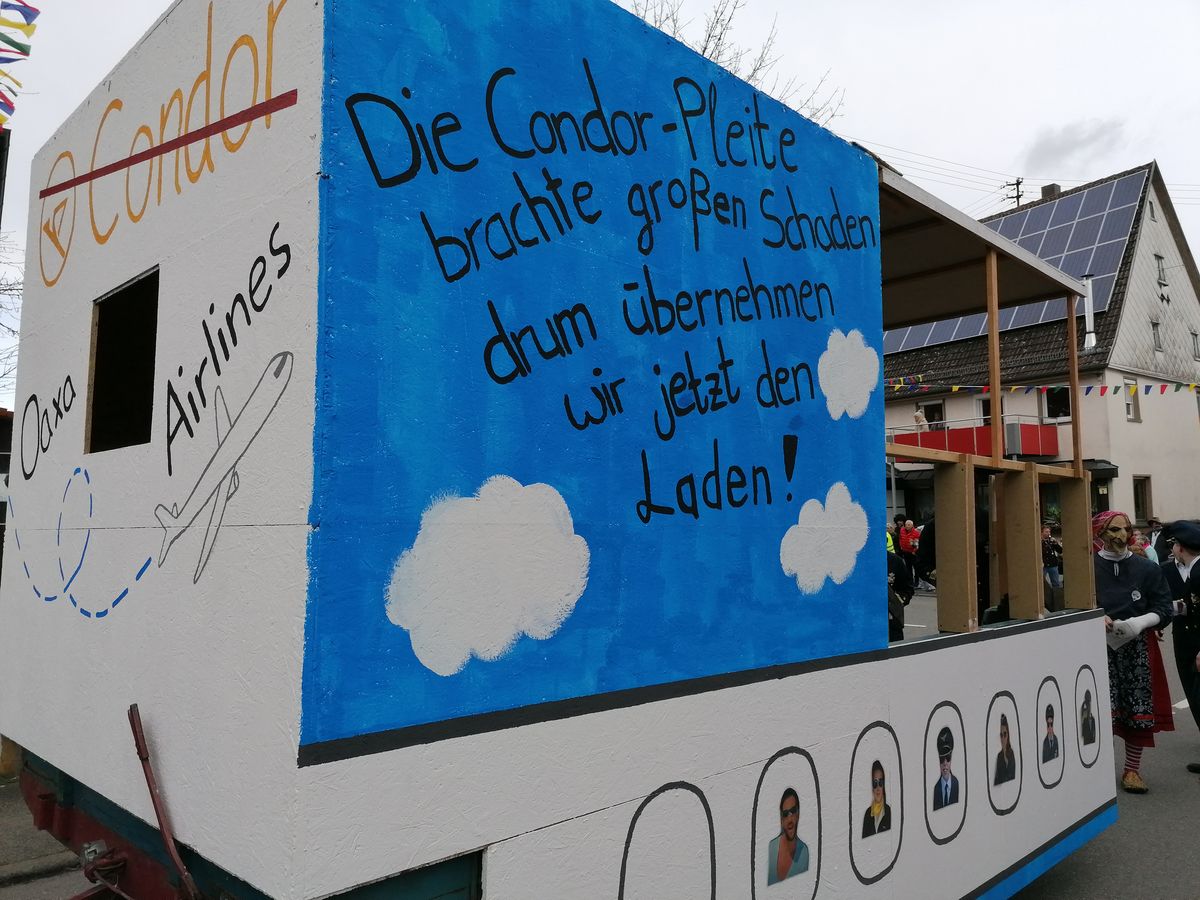 Condor
Oaxa Airlines
Die Condor-Pleite
brachte großen Schaden
drum übernehmen
wir jetzt den
Laden!